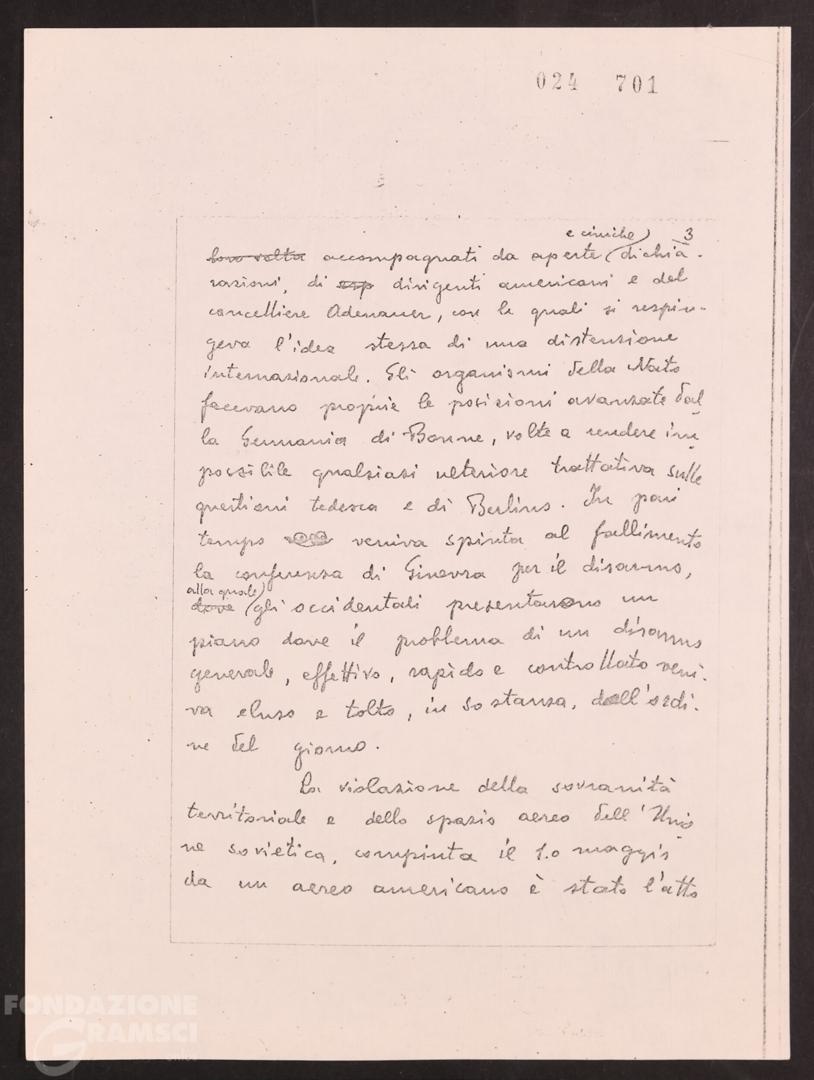 024 701
3
e ciniche
loro volta accompagnati da aperte dichia-
razioni, di esp dirigenti americani e del
cancelliere Adenauer, con le quali si respin-
geva l'idea stessa di una distensione
internazionale. Gli organismi della Nato
facevano proprie le posizioni avanzate dal
la Germania di Bonne, volte a rendere im
possibile qualsiasi ulteriore trattativa sulle
questioni tedesca e di Berlino. In pari
tempo veniva spinta al fallimento
la conferenza di Ginevra per il disarmo,
alla quale
dove gli occidentali presentarono un
piano dove il problema di un disarmo
generale, effettivo, rapido e controllato veni-
va eluso e tolto, in sostanza, dall'ordi-
ne del giorno.
La violazione della sovranità
territoriale e dello spazio aereo dell'Unio
ne sovietica, compiuta il 1.o maggio
da un aereo americano è stato l'atto
FONDAZIONE
GRAMSCI